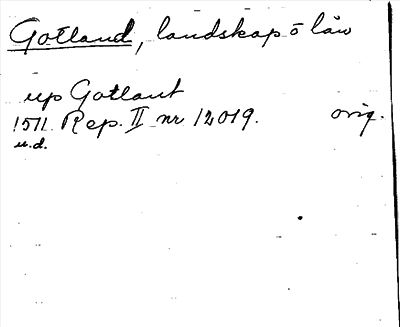 Gotland, landskap o län
up Gotlant
1511. Rep. II nr 12019. orig.
u.d.